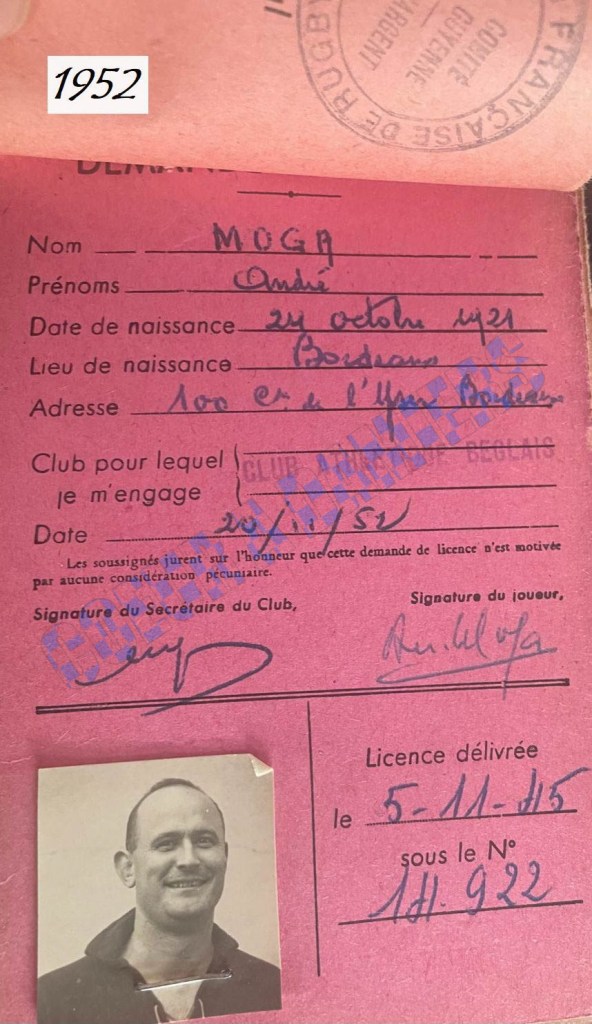 1952
FRANÇAISE DE RUGBY
COMITÉ
GUYENNE
ARGENT
Nom MOGA
Prénoms André
Date de naissance 24 octobre 1921
Lieu de naissance Bordeaux
Adresse 100 Crs de l'Yser Bordeaux
Club pour lequel CLUB ATHLETIQUE BEGLAIS
je m'engage
Date 20/11/52
Les soussignés jurent sur l'honneur que cette demande de licence n'est motivée
par aucune considération pécuniaire.
Signature du Secrétaire du Club,
Signature du joueur,
Licence délivrée
le 5-11-45
sous le N°
14.922